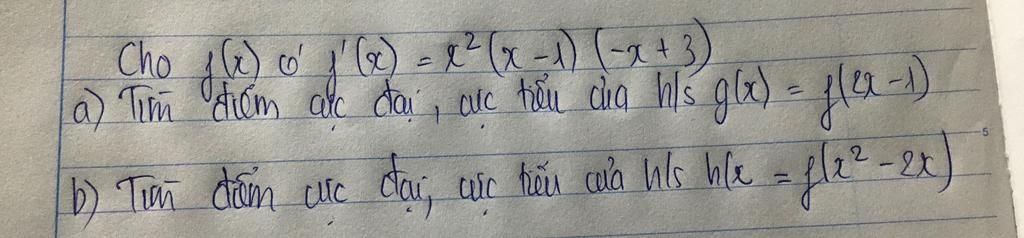 Cho f(x) có f'(x) = x²(x-1)(-x+3)
a) Tìm điểm cực đại, cực tiểu của h/s g(x) = f(2x-1)
b) Tìm điểm cực đại, cực tiểu của h/s h(x = f(x²-2x)
5